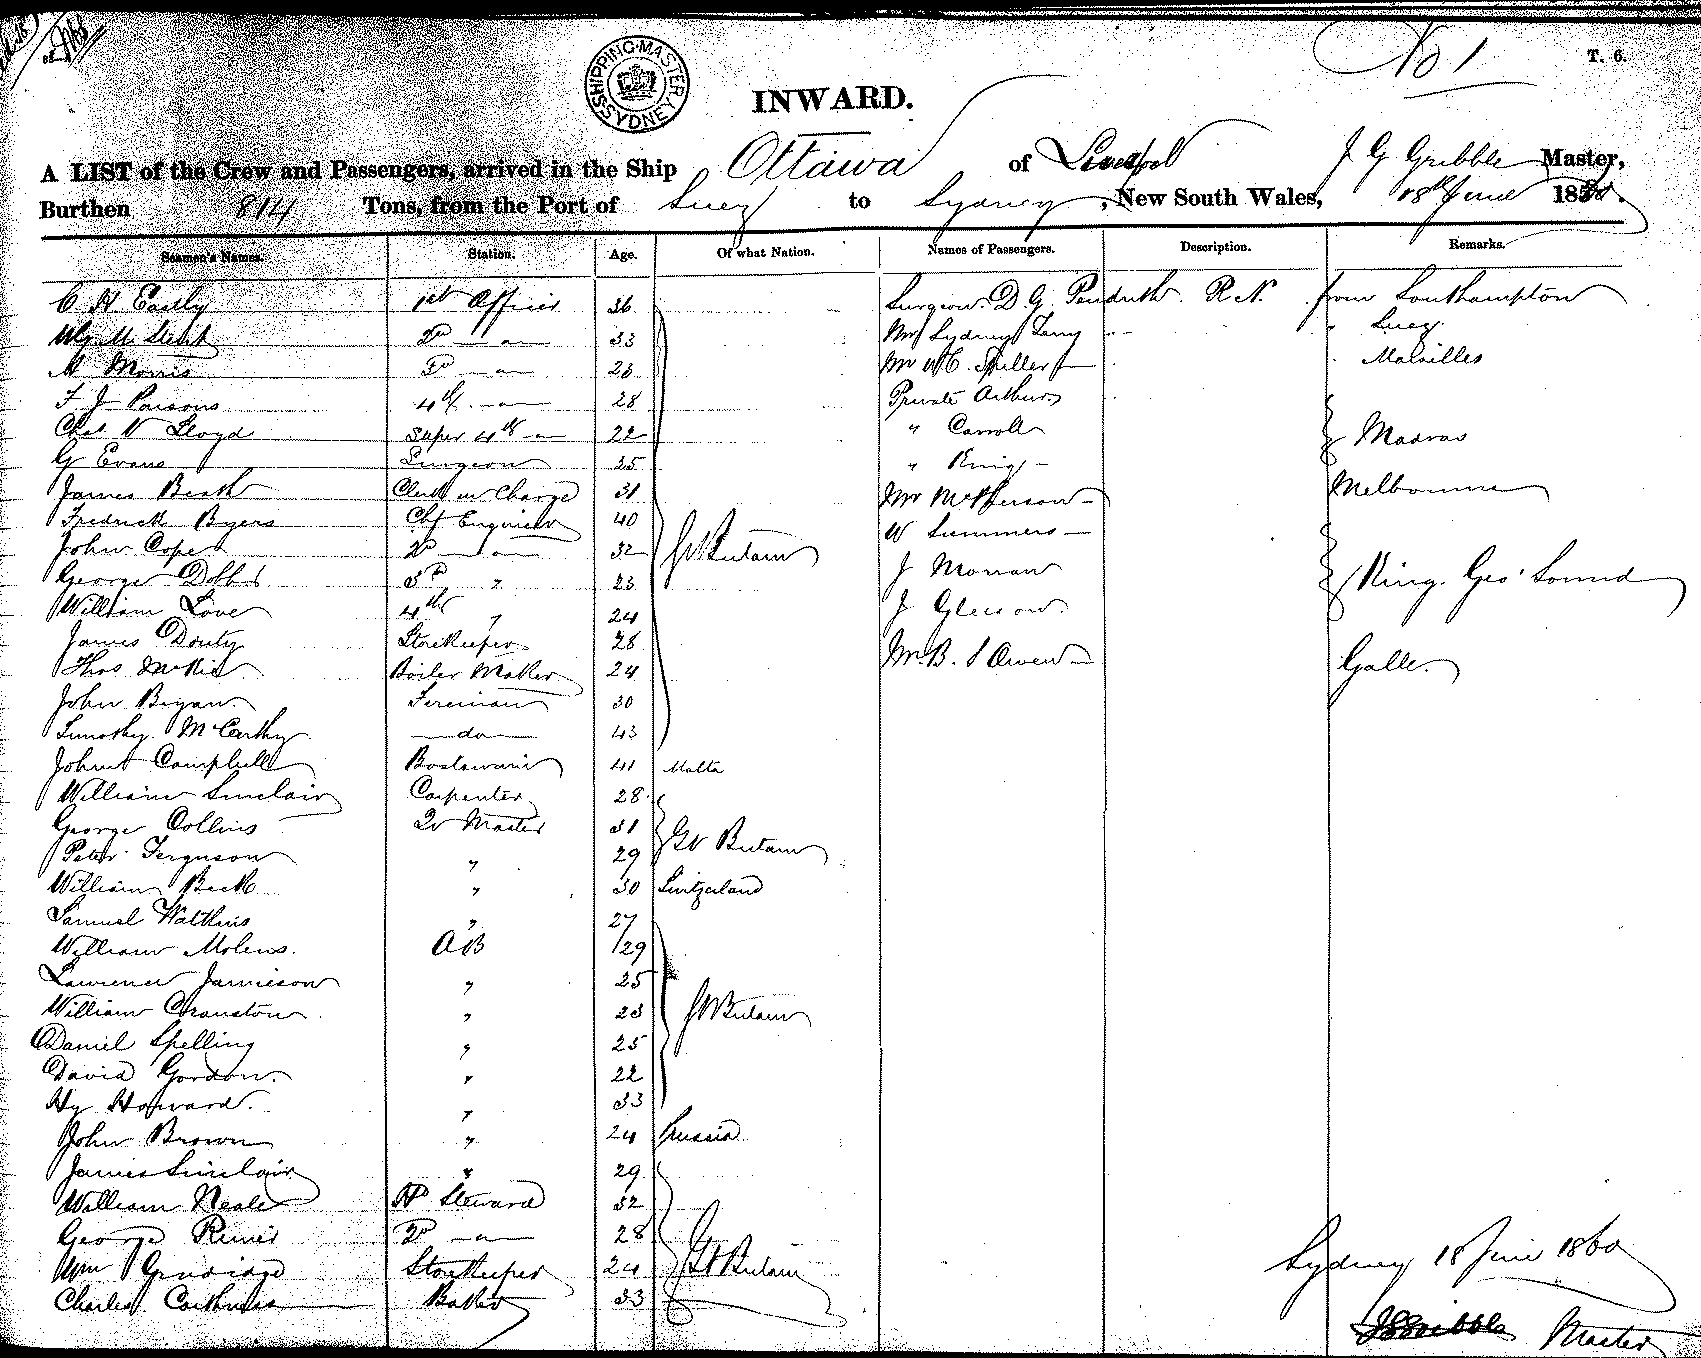 No 1
T. 6.
SHIPPING MASTER SYDNEY
INWARD.
A LIST of the Crew and Passengers, arrived in the Ship Ottawa of Liverpool J G Gribble Master,
Burthen 814 Tons, from the Port of Suez to Sydney, New South Wales, 18th June 1860.
Seamen's Names. Station. Age. Of what Nation. Names of Passengers. Description. Remarks.
C H Eastly 1st Officer 36 Surgeon D G Pendrith R.N. from Southampton
33 Mr Sydney Terry " Suez
M Morris 3d — do — 23 Mr W C Spiller " Marseilles
F J Parsons 4th — do — 28 Private Arthur
Chas W Lloyd Super 4th — do — 22 " Carroll Madras
G Evans Surgeon 25 " King
James Beath Clerk in Charge 31 Mr McPherson Melbourne
Fredrick Byers Chf Engineer 40 W Summers
John Cope 2d — do — 32 Gt Britain J Moran King Geo' Sound
George Dobbs 3d " 23
William Love 4th " 24 J Gleeson
James Douty Storekeeper 28
Thos McKie Boiler Maker 24 Mr B. S Owen Galle
John Bryan Fireman 30
Timothy McCarthy — do — 43
John Campbell Boatswain 41 Malta
William Sinclair Carpenter 28
George Collins Qr Master 31 Gt Britain
Peter Ferguson " 29
William Beck " 30 Switzerland
Samuel Watkins " 27
William Molens. AB 29
Lawrence Jamieson " 25
William Cranston " 23 Gt Britain
Daniel Spelling " 25
David Gordon. " 22
Hy Howard. " 33
John Brown " 24 Prussia
James Sinclair " 29
William Neale Hd Steward 32
George 2d — do — 28
Wm Storekeeper 24 Gt Britain
Charles Baker 33
Sydney 18 June 1860
J G Gribble Master